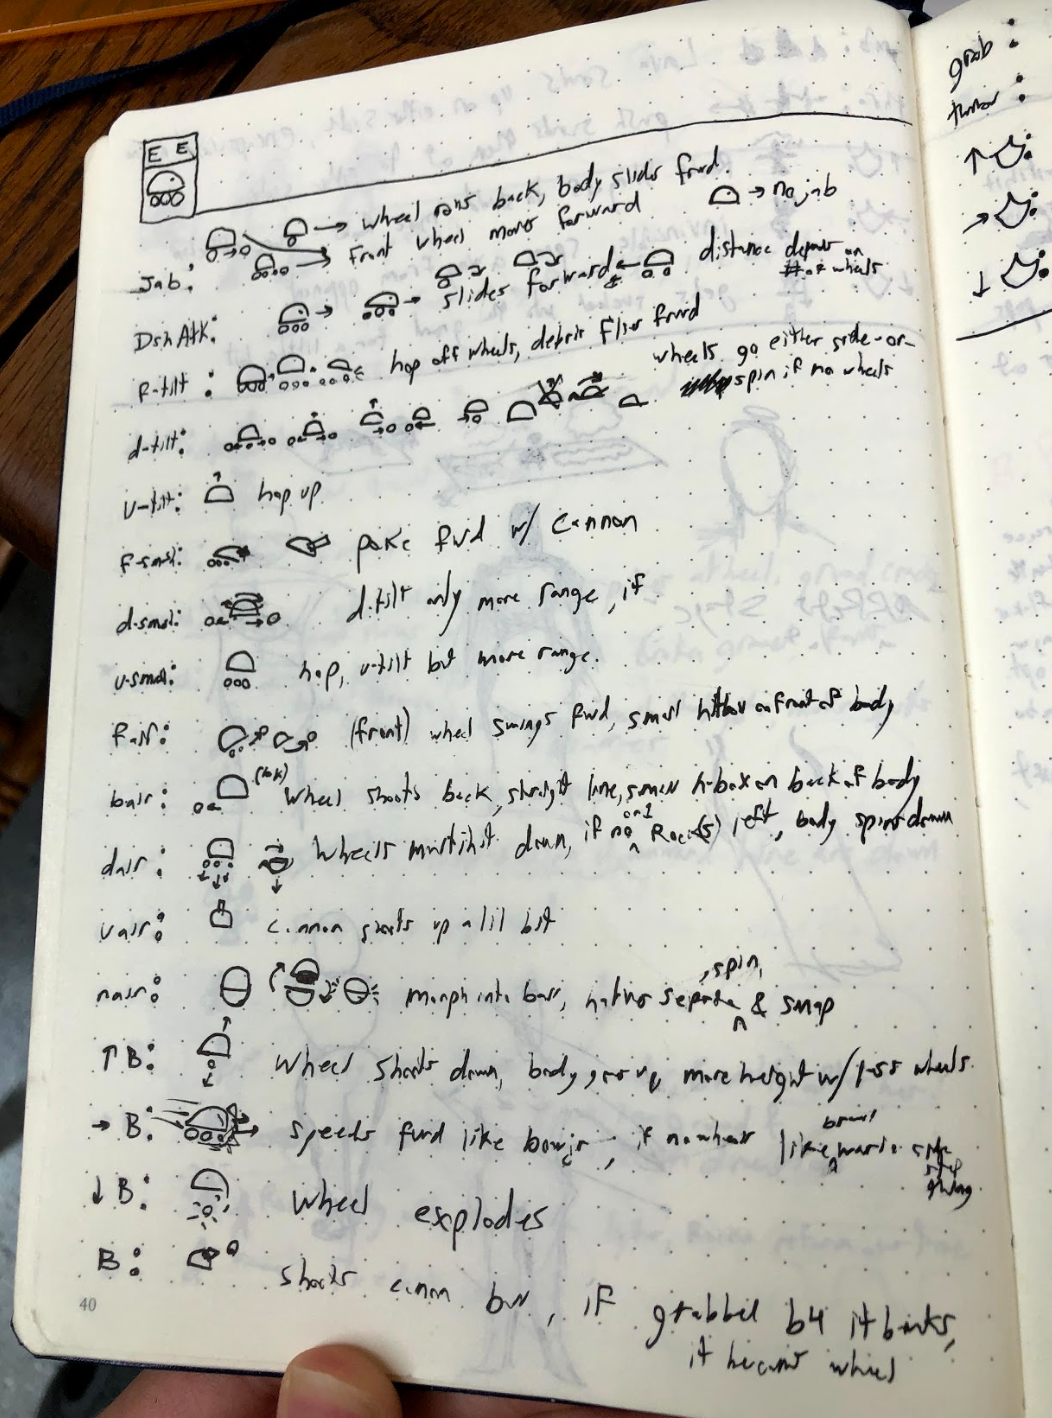 E E
wheel runs back, body slides frwd.
Jab: front wheel moves forward → no jab
Dsh Atk: slides forward distance depends on # of wheels
f-tilt: hop off wheels, debris flies frwrd
d-tilt: wheels go either side-or-
spin if no wheels
u-tilt: hop up
f-smsh: poke fwd w/ cannon
d-smsh: d-tilt only more range, if
u-smsh: hop, u-tilt but more range.
fair: (front) wheel swings fwd, small hitbox on front of body
bair: (back) wheel shoots back, straight line, small h-box on back of body
dair: wheels multihit down, if no or 1 left, body spins down
uair: cannon shoots up a lil bit
nair: morph into ball, halves separate, spin, & snap
↑ B: wheel shoots down, body goes up, more height w/ wheels.
→ B: speeds fwrd like bowjr, if no wheels like brawl wario side
↓ B: wheel explodes
B: shoots cannon ball, if grabbed b4 it breaks,
it becomes wheel
40
grab:
throw:
↑
→
↓